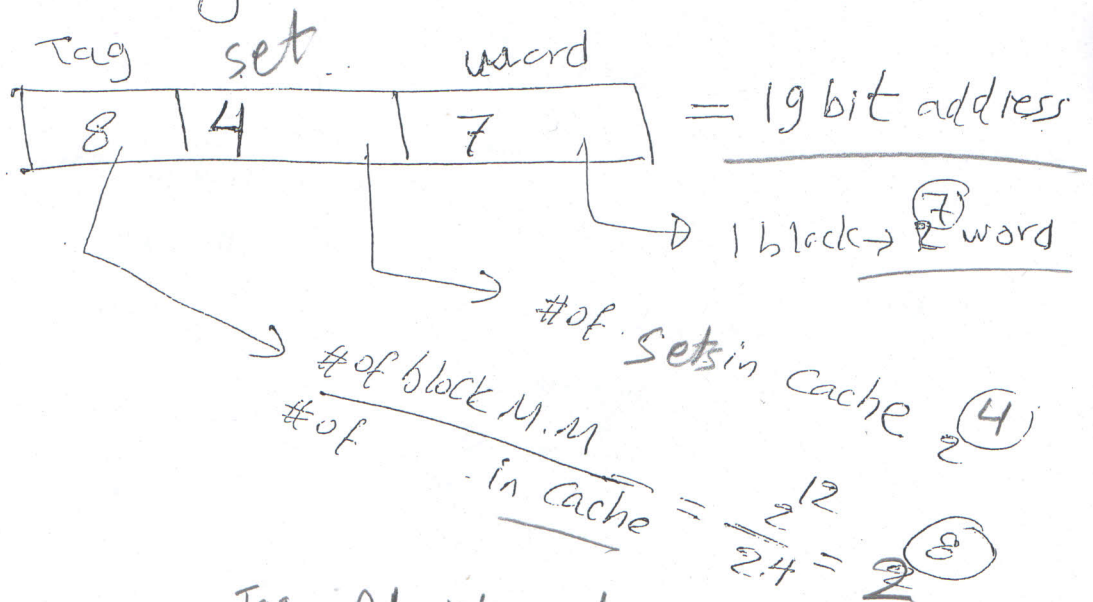 Tag set word
8 4 7 = 19 bit address
1 block → 2^7 word
# of sets in Cache 2^4
# of block M.M
# of in Cache = 2^12 / 24 = 2^8